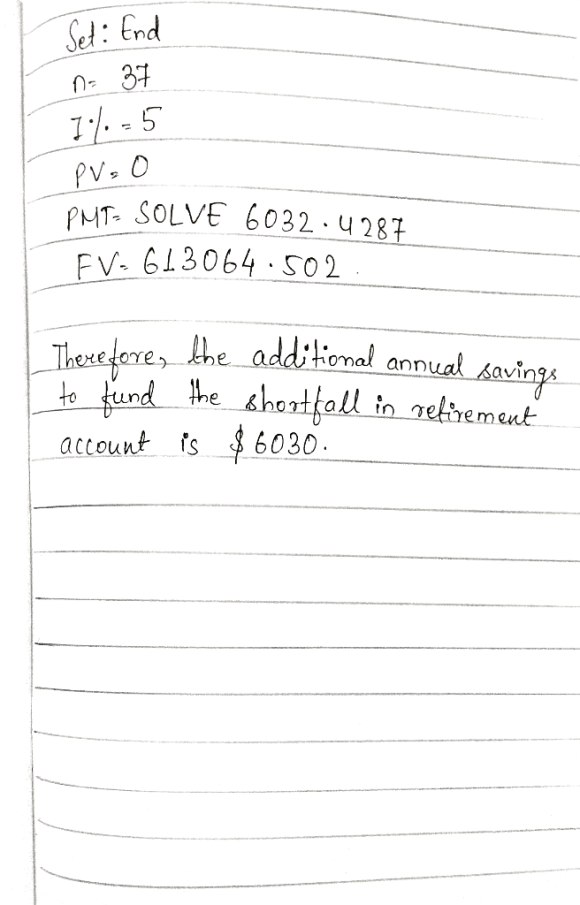 Set: End
n= 37
I%. = 5
PV= 0
PMT= SOLVE 6032.4287
FV= 613064.502
Therefore, the additional annual savings
to fund the shortfall in retirement
account is $6030.